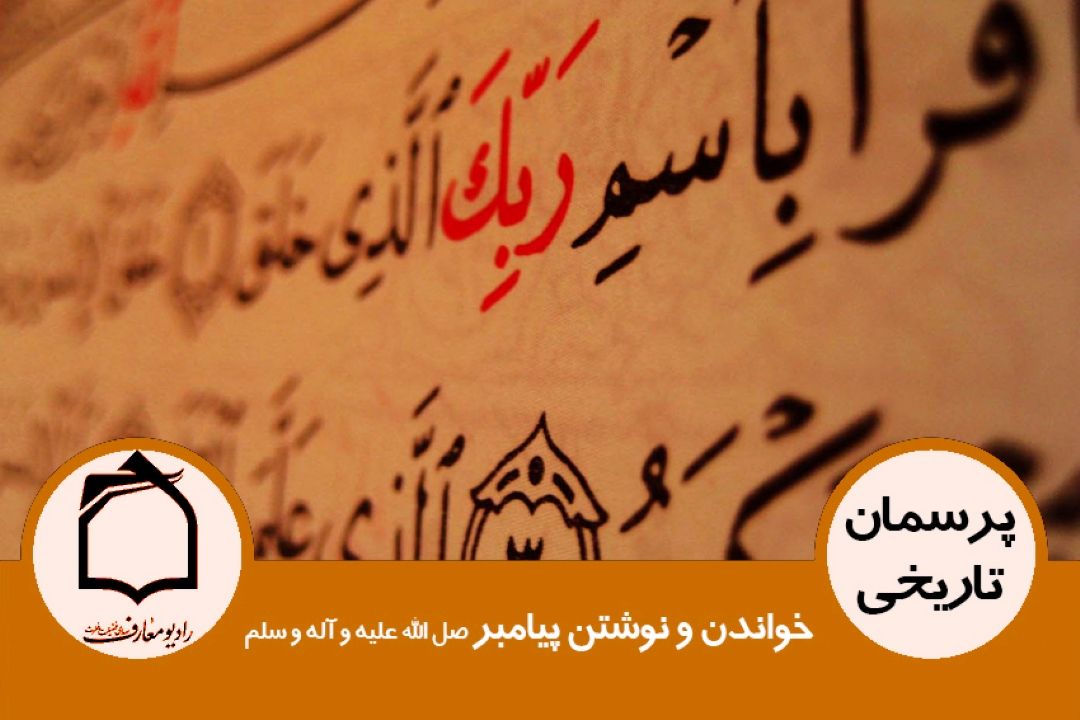 قرأ بِٱسْمِ رَبِّكَ ٱلَّذِى خَلَقَ
٣ ٱلَّذِى عَلَّمَ
پرسمان
تاریخی
خواندن و نوشتن پیامبر صل الله علیه و آله و سلم
رادیو معارف